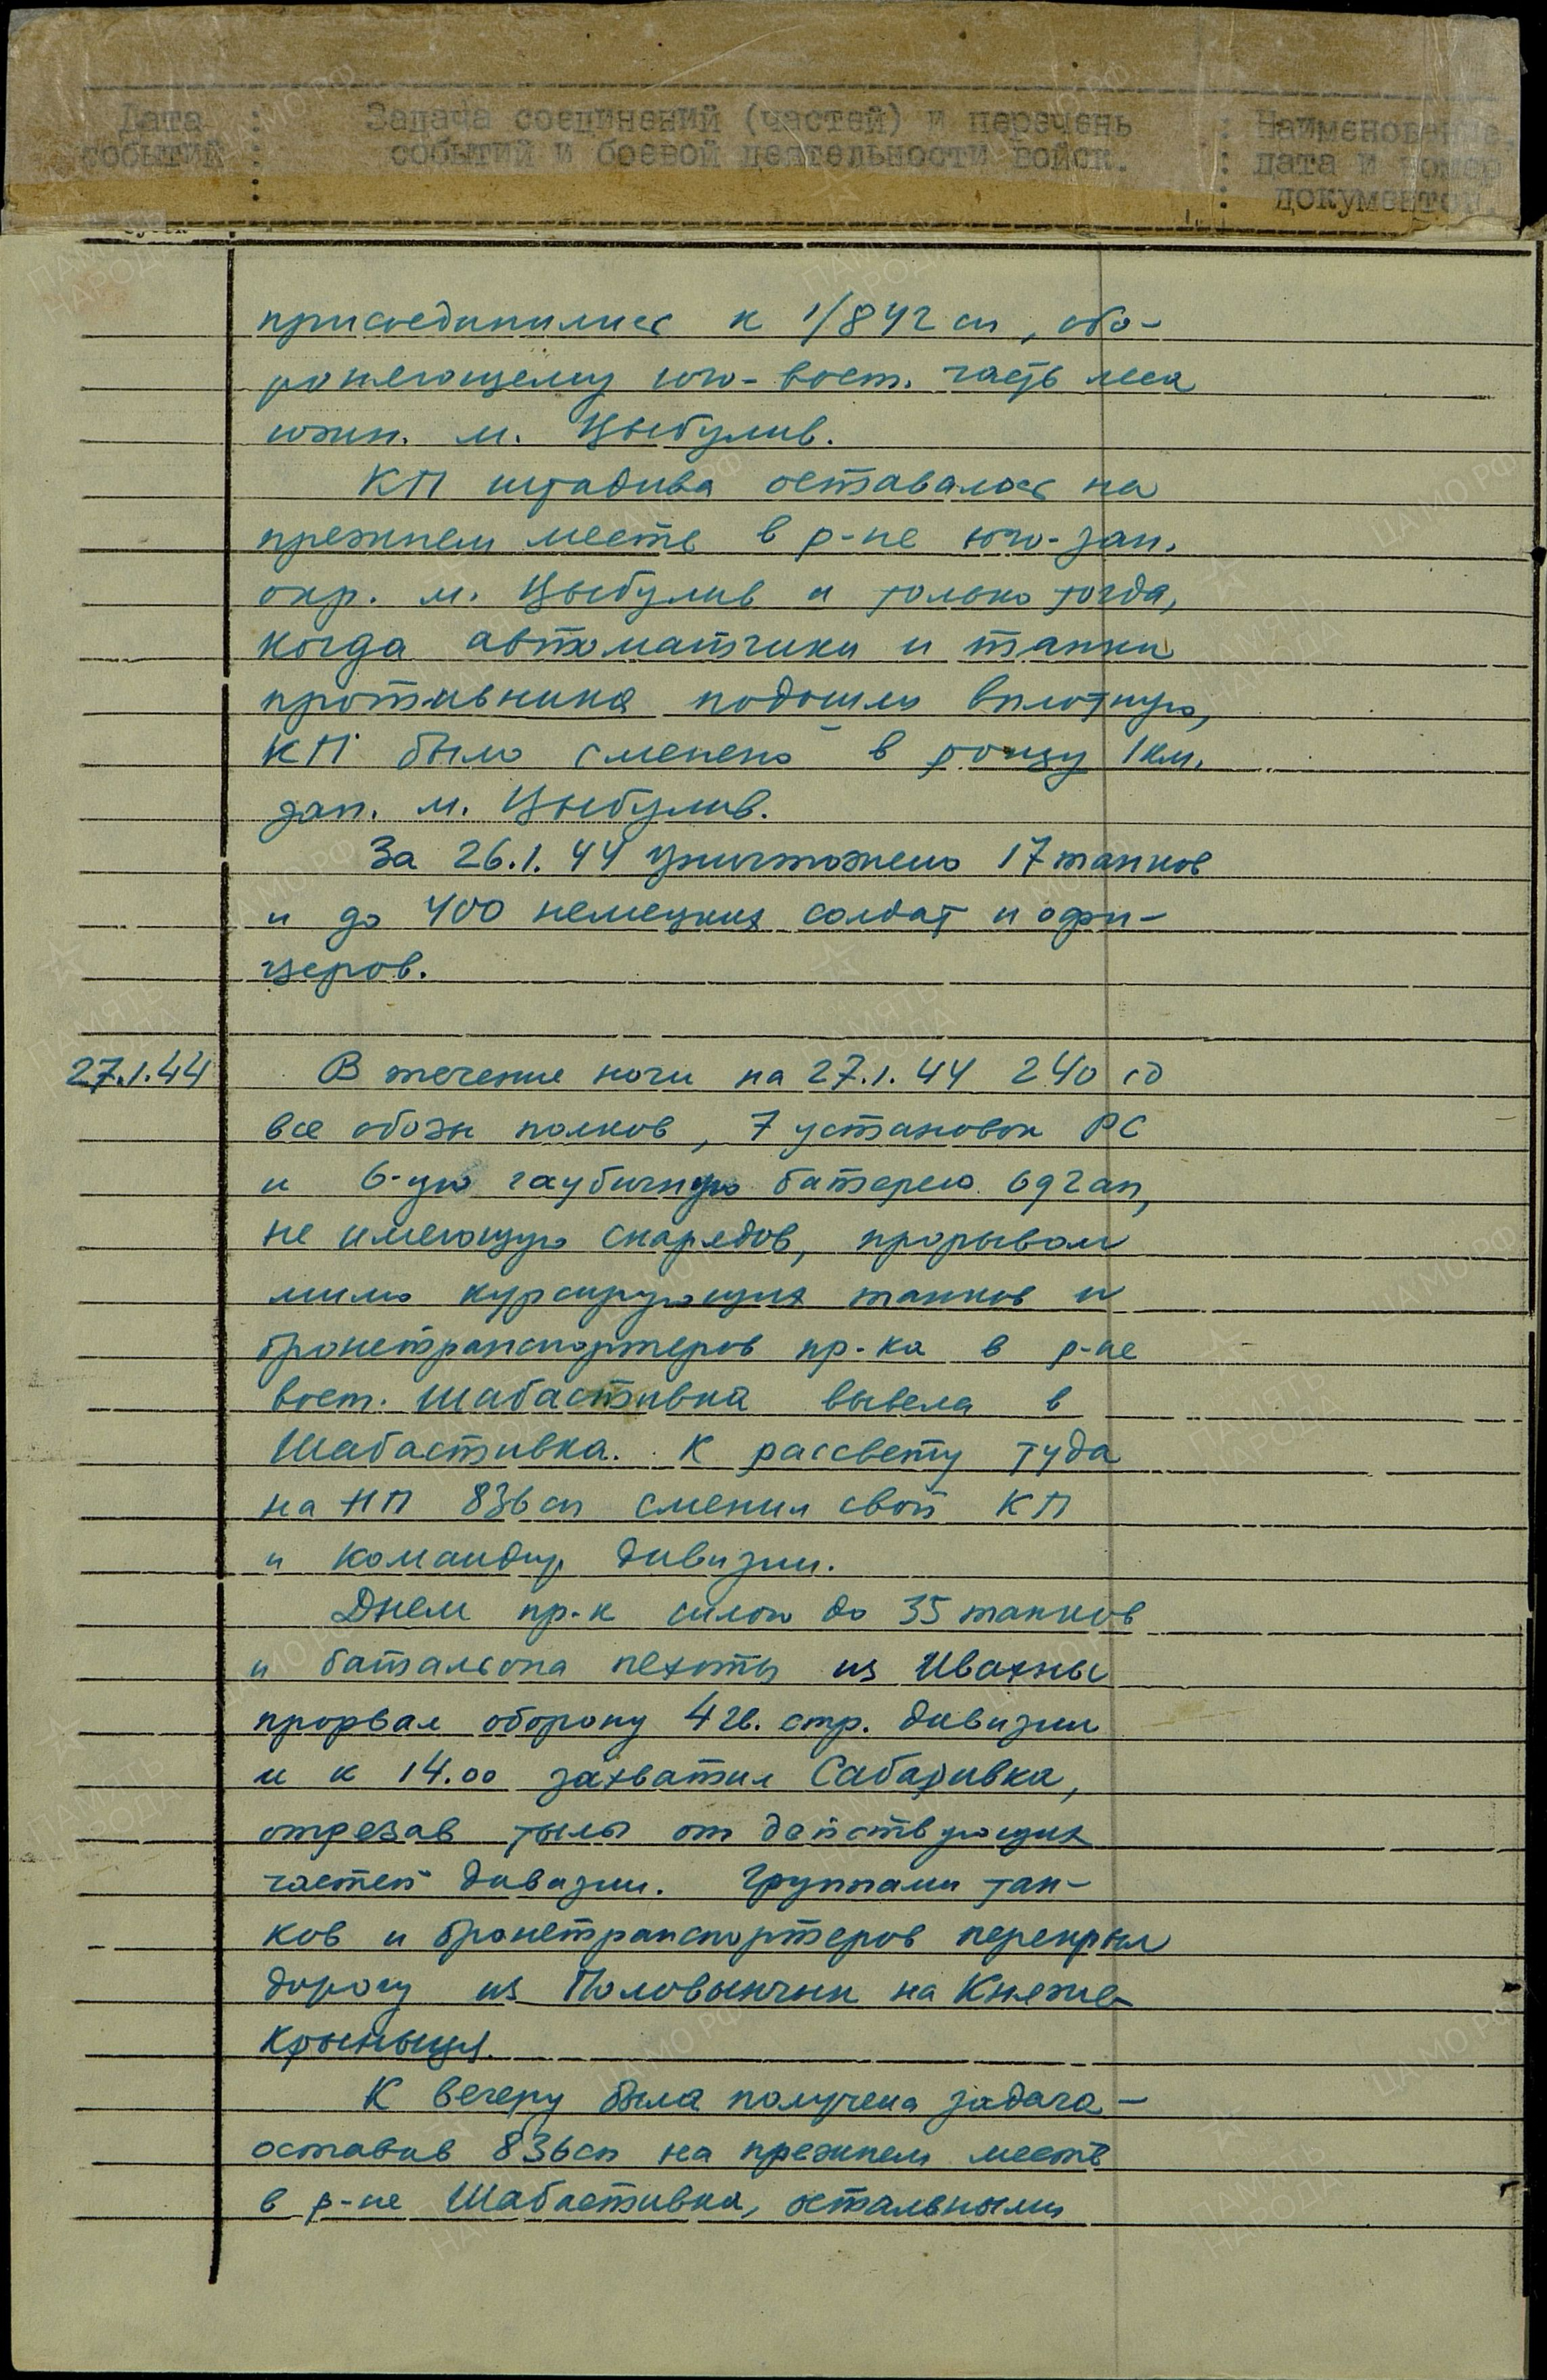 Дата : Задача соединений (частей) и перечень : Наименование,
событий : событий и боевой деятельности войск. : дата и номер
: : документов.
присоединились к 1/842 сп, обо-
роняющему юго-вост. часть леса
южн. м. Цыбулив.
КП штадива оставалось на
прежнем месте в р-не юго-зап.
окр. м. Цыбулив и только тогда,
когда автоматчики и танки
противника подошли вплотную,
КП было сменено в рощу 1 км.
зап. м. Цыбулив.
За 26.1.44 уничтожено 17 танков
и до 400 немецких солдат и офи-
церов.
27.1.44 В течение ночи на 27.1.44 240 сд
все обозы полков, 7 установок РС
и 6-ую гаубичную батарею 692 ап,
не имеющую снарядов, прорывом
мимо курсирующих танков и
бронетранспортеров пр-ка в р-не
вост. Шабастивка вывела в
Шабастивка. К рассвету туда
на НП 836 сп сменил свой КП
и командир дивизии.
Днем пр-к силою до 35 танков
и батальона пехоты из Ивахны
прорвал оборону 4 гв. стр. дивизии
и к 14.00 захватил Сабаривка,
отрезав тылы от действующих
частей дивизии. Группами тан-
ков и бронетранспортеров перекрыл
дорогу из Половынчик на Княже-
Крыныця.
К вечеру была получена задача –
оставив 836 сп на прежнем месте
в р-не Шабастивка, остальными